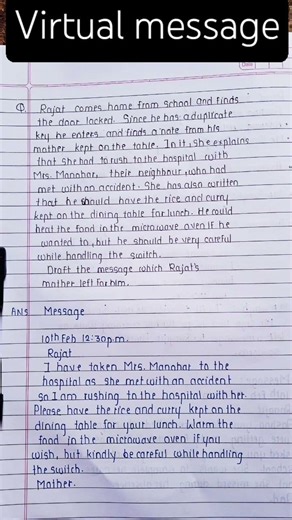 Virtual message
Date
Q. Rajat comes home from school and finds
the door locked. Since he has a duplicate
key he enters and finds a note from his
mother kept on the table. In it, she explains
that she had to rush to the hospital with
Mrs. Manohar, their neighbour, who had
met with an accident. She has also written
that he should have the rice and curry
kept on the dining table for lunch. He could
heat the food in the microwave oven if he
wanted to, but he should be very careful
while handling the switch.
Draft the message which Rajat's
mother left for him.
ANS Message
10th Feb 12:30p.m.
Rajat
I have taken Mrs. Manohar to the
hospital as she met with an accident
so I am rushing to the hospital with her.
Please have the rice and curry kept on the
dining table for your lunch. Warm the
food in the microwave oven if you
wish, but kindly be careful while handling
the switch.
Mother.